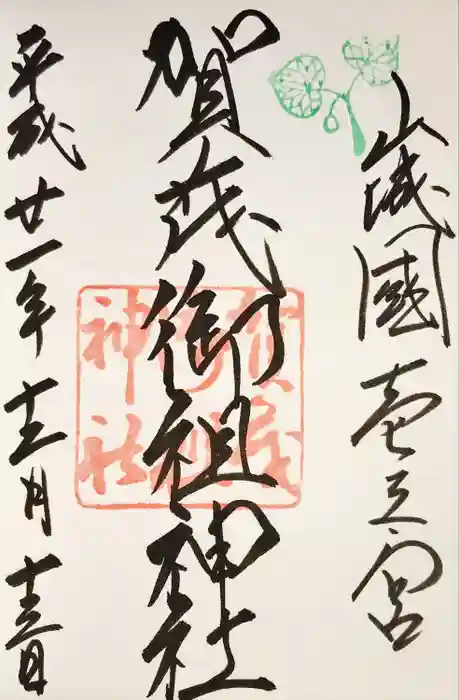 山城國壱之宮
賀茂御祖神社
平成廿一年十二月十三日
賀茂
御祖
神社